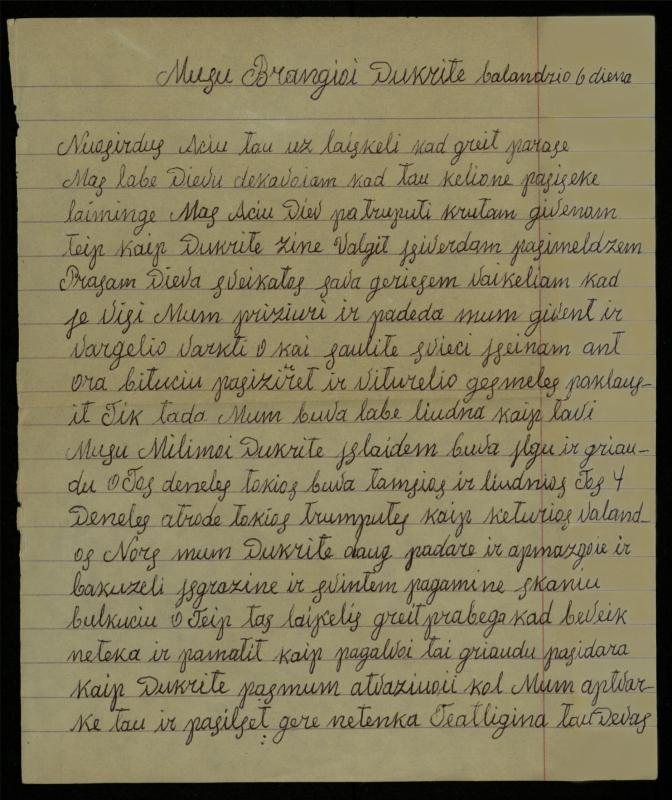 Musu Brangioi Dukrite balandrio 6 diena
Nuosirdus Aciu tau uz laiskeli kad greit parase
Mas labe Dievu dekavoiam kad tau kelione pasiseke
laiminge Mas Aciu Diev pa truputi krutam givenam
teip kaip Dukrite zine Valgit isiverdam pasimeldzem
Prasam Dieva sveikatos sava geriesem vaikeliam kad
je visi Mum priziuri ir padeda mum givent ir
vargelio varkti O kai saulite svieci iseinam ant
ora bituciu pasiziret ir viturelio gesmeles paklaus-
it Tik tada Mum buva labe liudna kaip tavi
Musu Milimoi Dukrite islaidem buva ilgu ir griau-
du O Tos deneles tokios buva tamsios ir liudnios Tos 4
Deneles atrode tokios trumputes kaip keturios valand-
os Nors mum Dukrite daug padare ir apmazgoie ir
bakuzeli isgrazine ir svintem pagamine skaniu
bulkuciu O Teip tas laikelis greit prabega kad beveik
neteka ir pamatit kaip pagalvoi tai griaudu pasidara
kaip Dukrite pasmum atvaziuoii kol Mum aptvar-
ke tau ir pasilset gere netenka Teatligina tau Devas